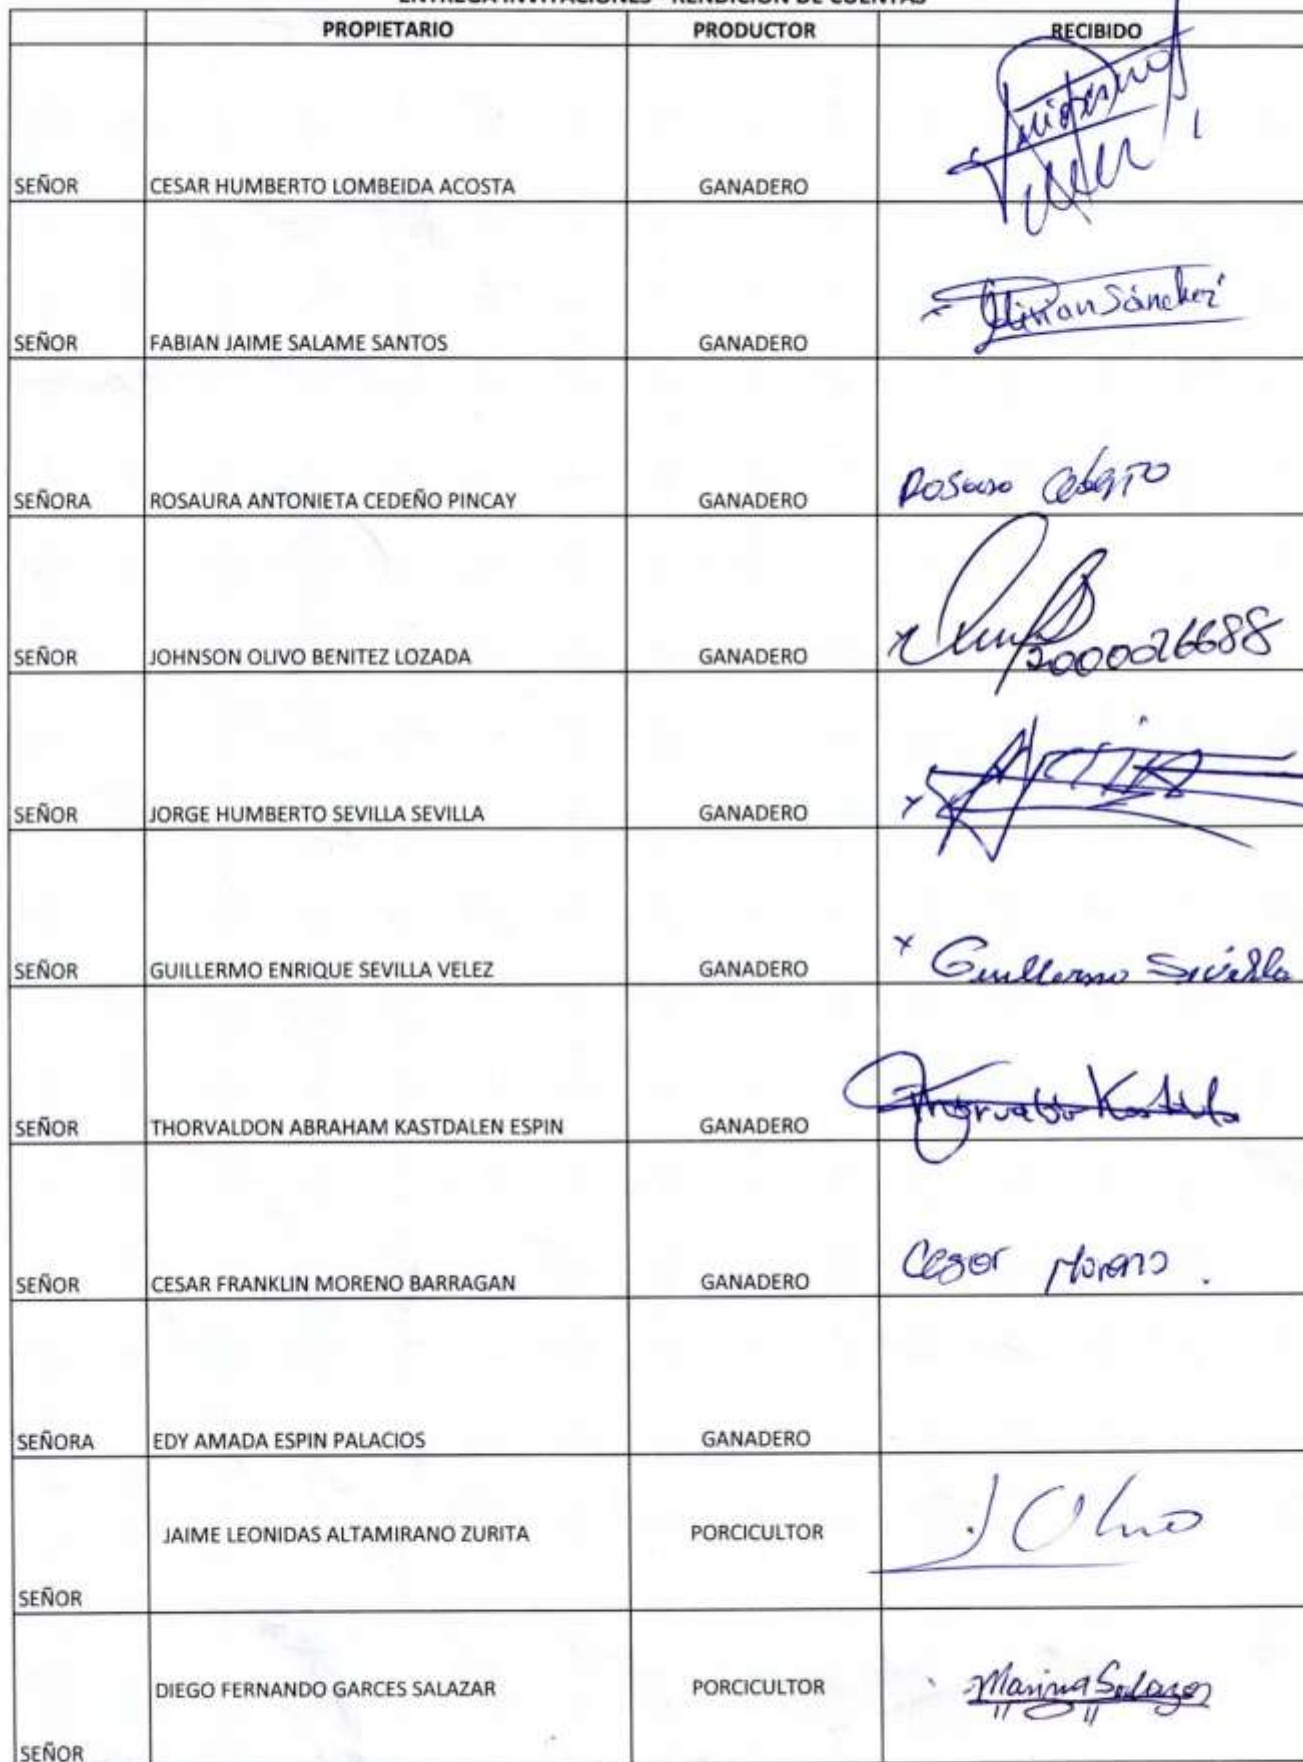 ENTREGA INVITACIONES - RENDICION DE CUENTAS
PROPIETARIO PRODUCTOR RECIBIDO
SEÑOR CESAR HUMBERTO LOMBEIDA ACOSTA GANADERO
SEÑOR FABIAN JAIME SALAME SANTOS GANADERO Sánchez
SEÑORA ROSAURA ANTONIETA CEDEÑO PINCAY GANADERO
SEÑOR JOHNSON OLIVO BENITEZ LOZADA GANADERO
SEÑOR JORGE HUMBERTO SEVILLA SEVILLA GANADERO
SEÑOR GUILLERMO ENRIQUE SEVILLA VELEZ GANADERO x Guillermo Sevilla
SEÑOR THORVALDON ABRAHAM KASTDALEN ESPIN GANADERO
SEÑOR CESAR FRANKLIN MORENO BARRAGAN GANADERO Cesar Moreno
SEÑORA EDY AMADA ESPIN PALACIOS GANADERO
JAIME LEONIDAS ALTAMIRANO ZURITA PORCICULTOR
SEÑOR
DIEGO FERNANDO GARCES SALAZAR PORCICULTOR Marina Salazar
SEÑOR